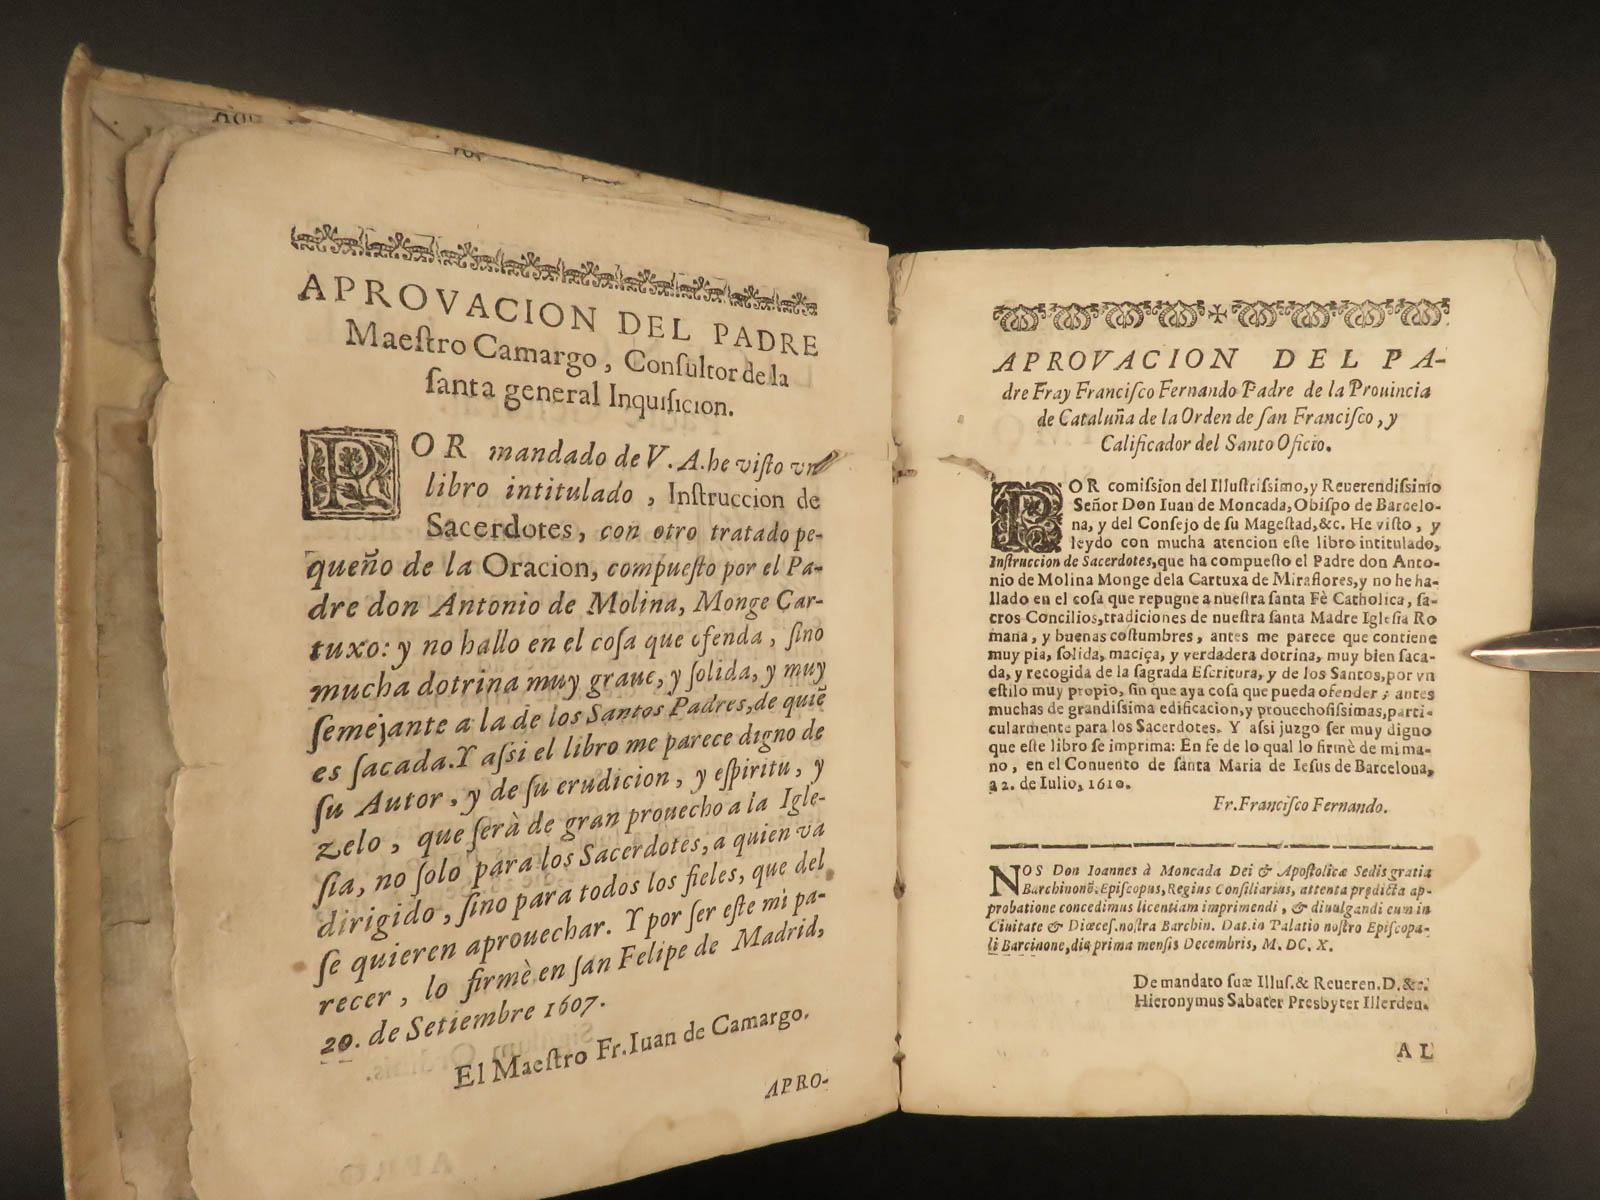 APROVACION DEL PADRE
Maeſtro Camargo, Conſultor de la
ſanta general Inquiſicion.
POR mandado de V. A. he viſto vn
libro intitulado, Inſtruccion de
Sacerdotes, con otro tratado pe-
queño de la Oracion, compueſto por el Pa-
dre don Antonio de Molina, Monge Car-
tuxo: y no hallo en el coſa que ofenda, ſino
mucha dotrina muy graue, y ſolida, y muy
ſemejante a la de los Santos Padres, de quiẽ
es ſacada. Y aſsi el libro me parece digno de
ſu Autor, y de ſu erudicion, y eſpiritu, y
zelo, que ſerà de gran prouecho a la Igle-
ſia, no ſolo para los Sacerdotes, a quien va
dirigido, ſino para todos los fieles, que del
ſe quieren aprouechar. Y por ſer eſte mi pa-
recer, lo firmè en ſan Felipe de Madrid,
20. de Setiembre 1607.
El Maeſtro Fr. Iuan de Camargo.
APRO-
APROVACION DEL PA-
dre Fray Franciſco Fernando Padre de la Prouincia
de Cataluña de la Orden de ſan Franciſco, y
Calificador del Santo Oficio.
POR comiſsion del Illuſtriſsimo, y Reuerendiſsimo
Señor Don Iuan de Moncada, Obiſpo de Barcelo-
na, y del Conſejo de ſu Mageſtad, &c. He viſto, y
leydo con mucha atencion eſte libro intitulado,
Inſtruccion de Sacerdotes, que ha compueſto el Padre don Anto-
nio de Molina Monge dela Cartuxa de Miraflores, y no he ha-
llado en el coſa que repugne a nueſtra ſanta Fè Catholica, ſa-
cros Concilios, tradiciones de nueſtra ſanta Madre Igleſia Ro
mana, y buenas coſtumbres, antes me parece que contiene
muy pia, ſolida, maciça, y verdadera dotrina, muy bien ſaca-
da, y recogida de la ſagrada Eſcritura, y de los Santos, por vn
eſtilo muy propio, ſin que aya coſa que pueda ofender; antes
muchas de grandiſsima edificacion, y prouechoſiſsimas, parti-
cularmente para los Sacerdotes. Y aſsi juzgo ſer muy digno
que eſte libro ſe imprima: En fe de lo qual lo firmè de mi ma-
no, en el Conuento de ſanta Maria de Ieſus de Barcelona,
a 2. de Iulio, 1610.
Fr. Franciſco Fernando.
NOS Don Ioannes à Moncada Dei & Apoſtolicæ Sedis gratia
Barchinonẽ. Epiſcopus, Regius Conſiliarius, attenta prędicta ap-
probatione concedimus licentiam imprimendi, & diuulgandi eum in
Ciuitate & Diœceſ. noſtra Barchin. Dat. in Palatio noſtro Epiſcopa-
li Barcinone, die prima menſis Decembris, M. DC. X.
De mandato ſuæ Illuſ. & Reueren. D. &c.
Hieronymus Sabater Presbyter Illerden.
AL